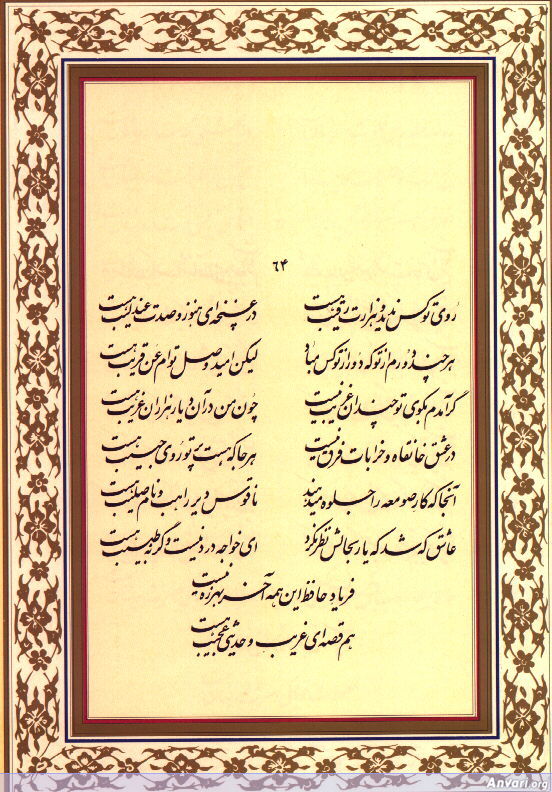 ۶۴
روی تو کس ندید و هزارت رقیب هست در غنچه‌ای هنوز و صدت عندلیب هست
هر چند دورم از تو که دور از تو کس مباد لیکن امید وصل توام عن قریب هست
گر آمدم بکوی تو چندان غریب نیست چون من در آن دیار هزاران غریب هست
در عشق خانقاه و خرابات فرق نیست هر جا که هست پرتو روی حبیب هست
آنجا که کار صومعه را جلوه میدهند ناقوس دیر راهب و نام صلیب هست
عاشق که شد که یار بحالش نظر نکرد ای خواجه درد نیست وگرنه طبیب هست
فریاد حافظ این همه آخر بهرزه نیست
هم قصه‌ای غریب و حدیثی عجیب هست
Anvari.org